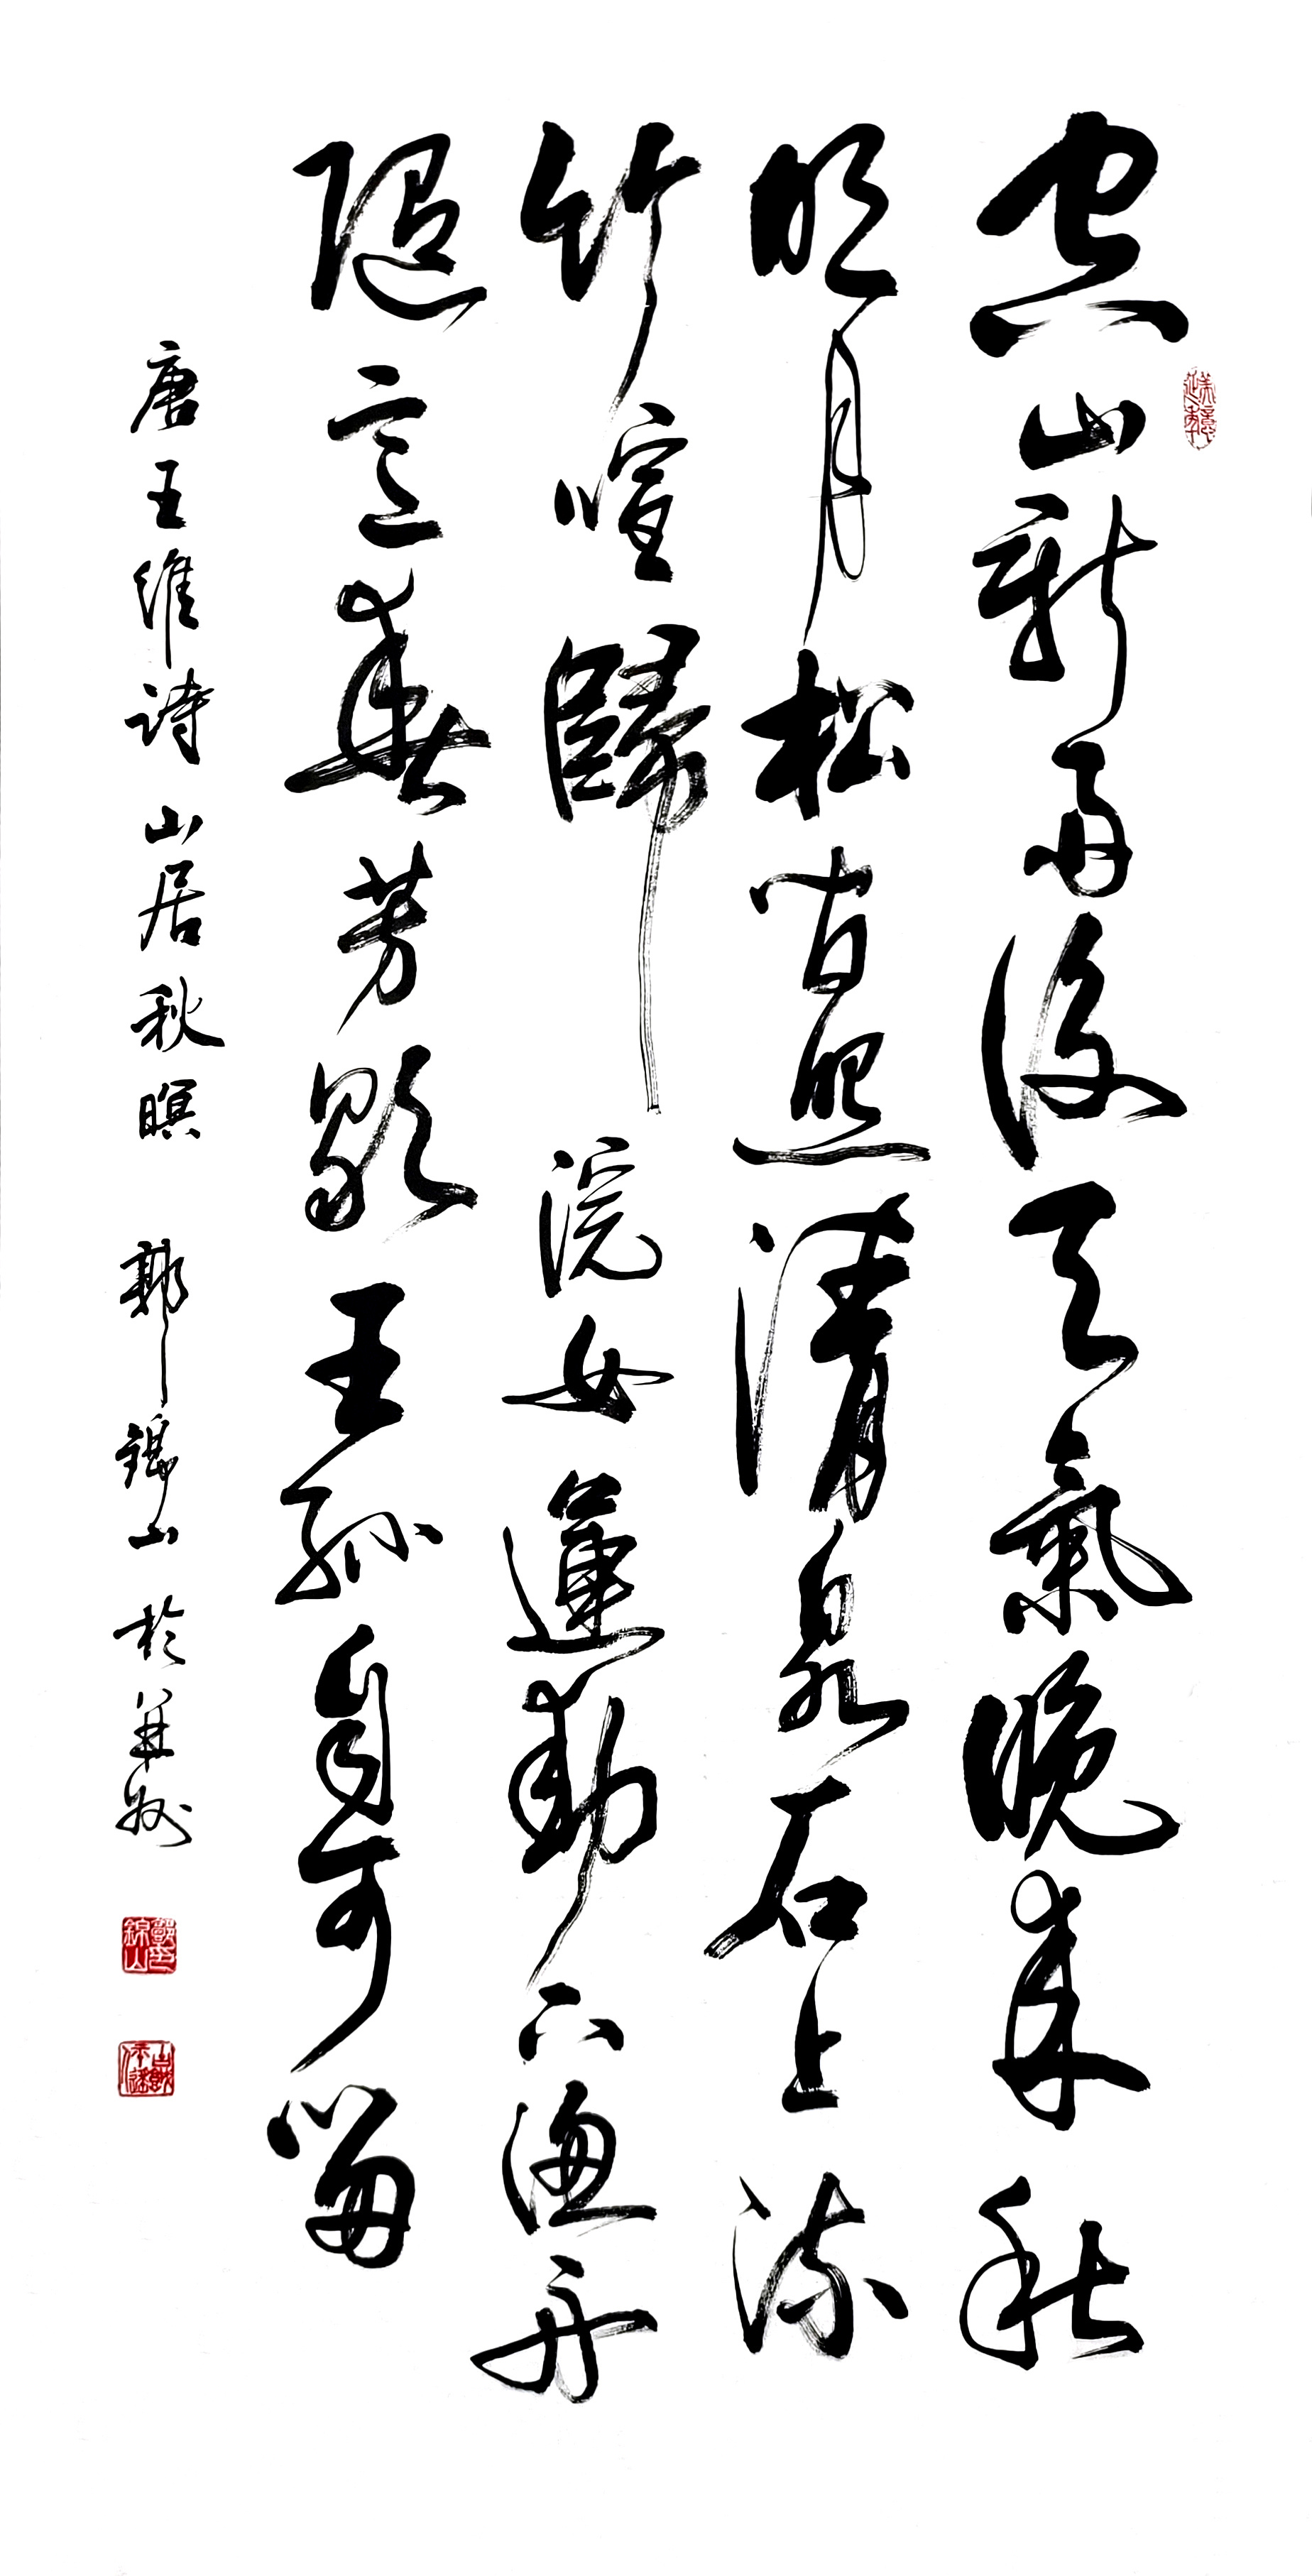 空山新雨後天氣晚來秋
明月松間照清泉石上流
竹喧歸浣女蓮動下漁舟
隨意春芳歇王孫自可留
唐王維詩山居秋暝 郭錦山於并州
美意延年